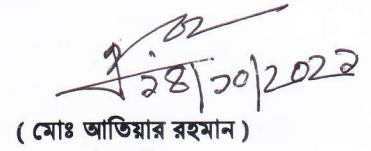 ২৪/১০/২০২২
( মোঃ আতিয়ার রহমান )